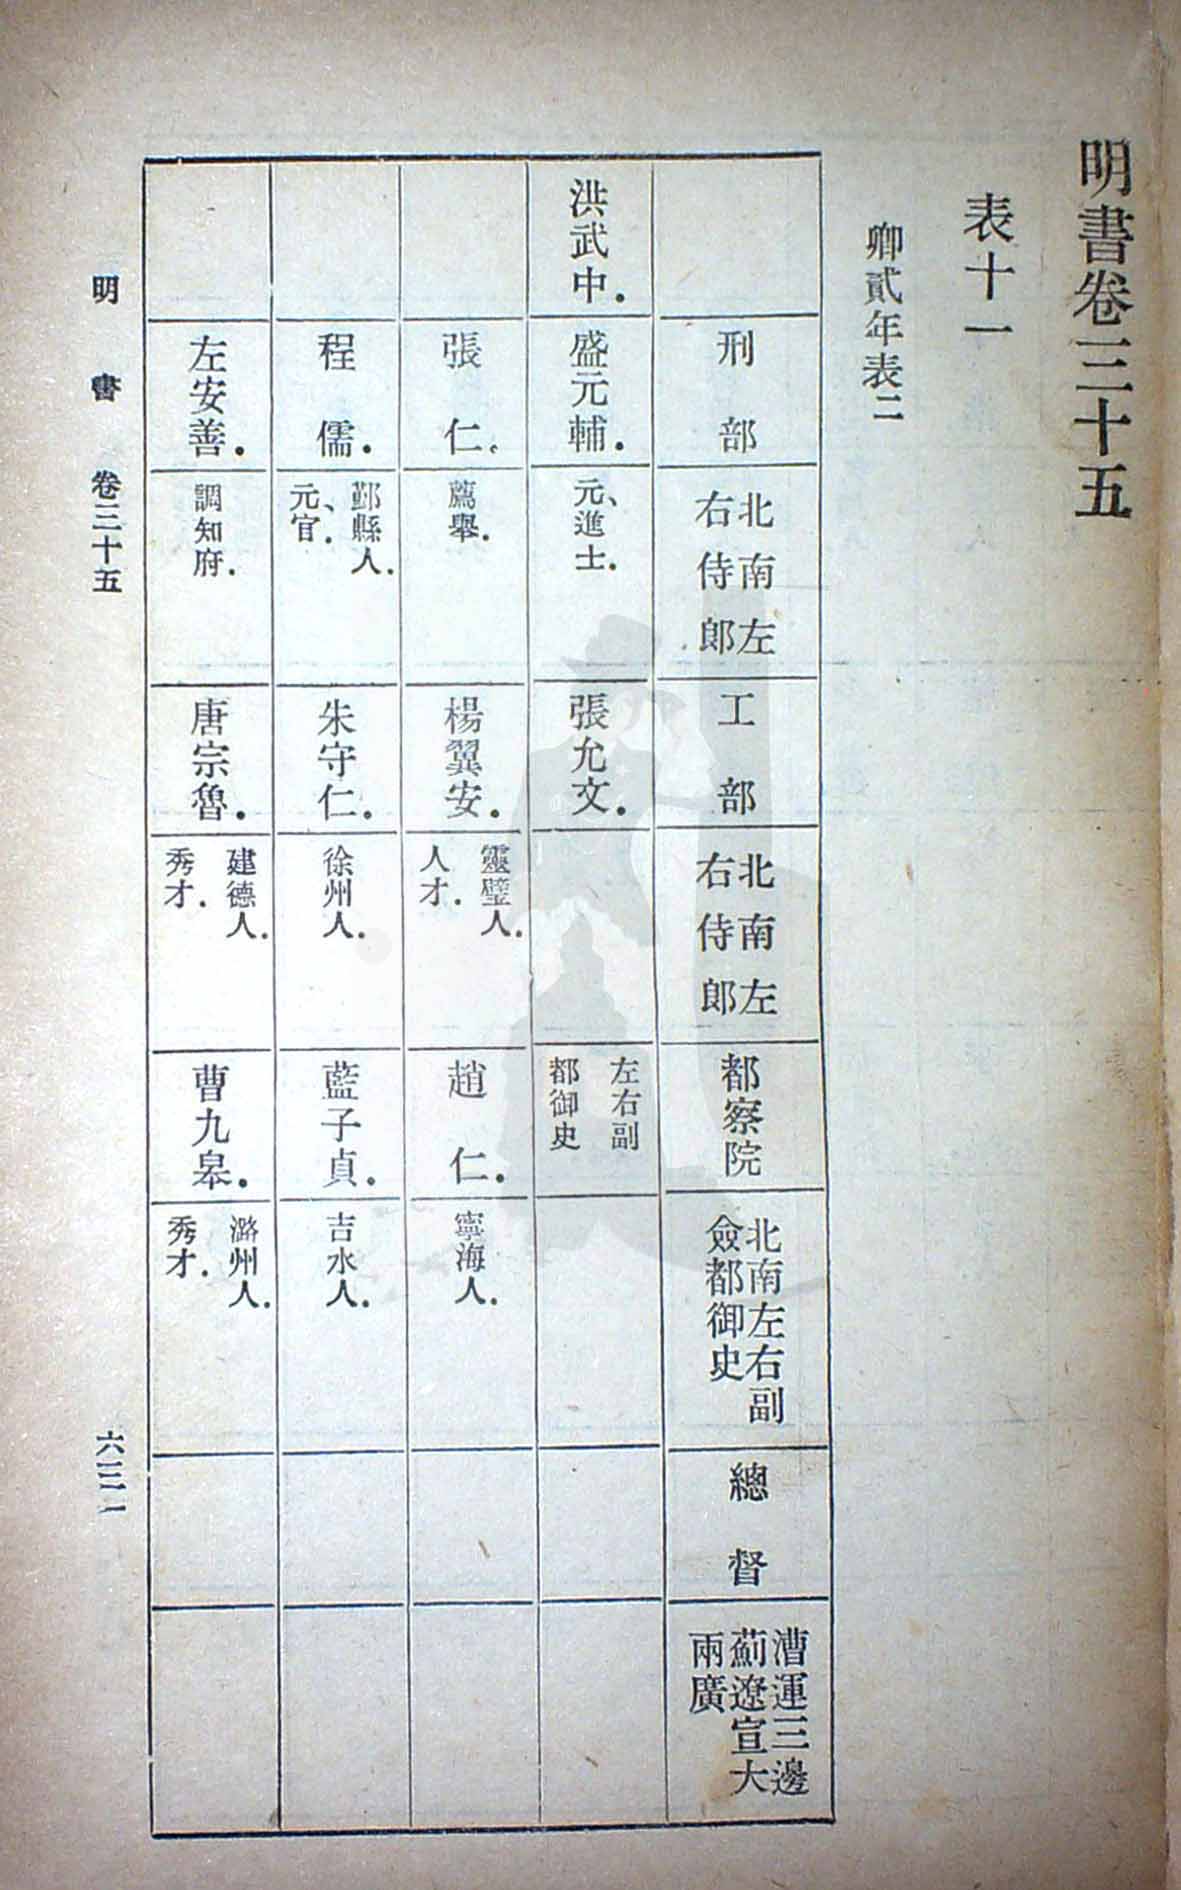 明書卷三十五
表十一
卿貳年表二
刑部
北南左
右侍郎
工部
北南左
右侍郎
都察院
北南左右副
僉都御史
總督
漕運三邊
薊遼宣大
兩廣
洪武中．
盛元輔．
元、進士．
張允文．
左右副
都御史
張仁．
薦舉．
楊翼安．
靈璧人．
人才．
趙仁．
寧海人．
程儒．
鄞縣人．
元、官．
朱守仁．
徐州人．
藍子貞．
吉水人．
左安善．
調知府．
唐宗魯．
建德人．
秀才．
曹九皋．
潞州人．
秀才．
明書 卷三十五